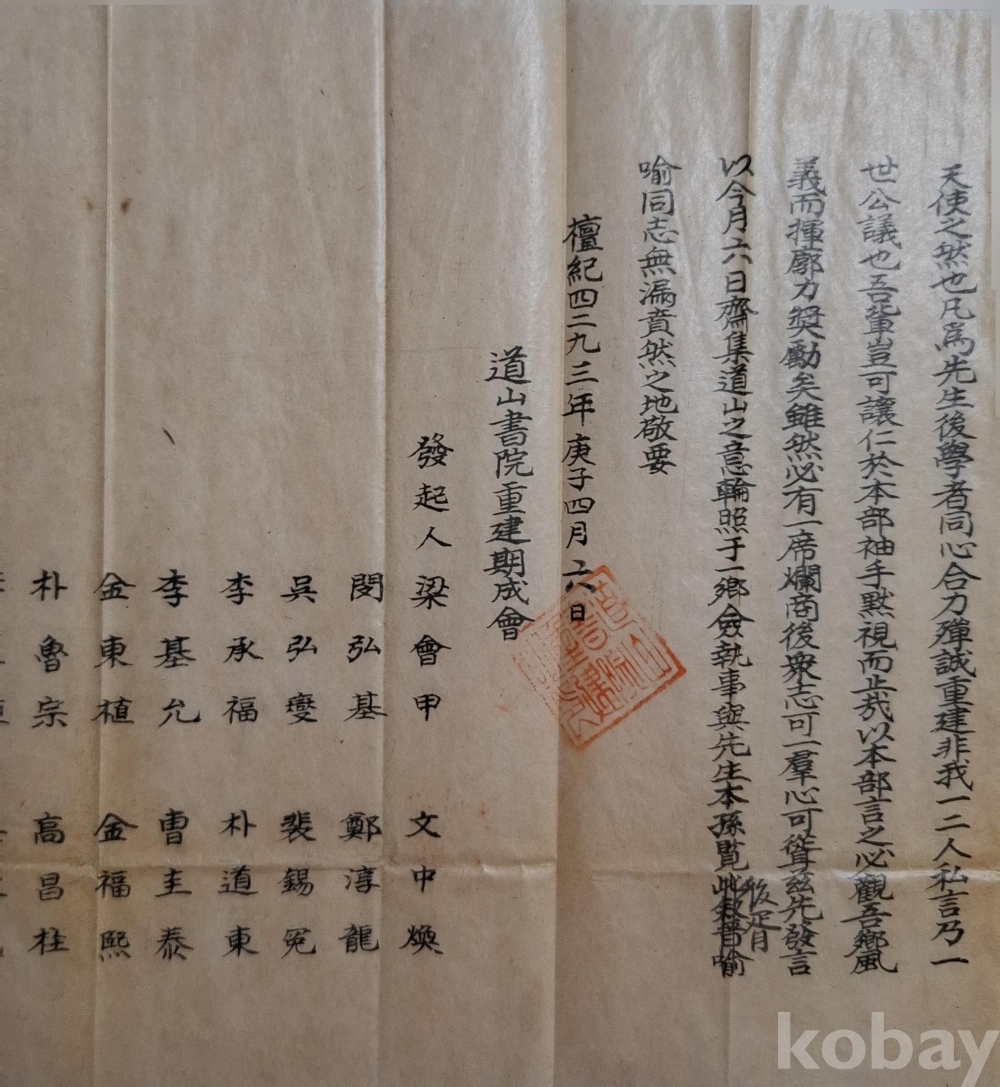 天使之然也凡爲先生後學者同心合力殫誠重建非我一二人私言乃一
世公議也吾輩豈可讓仁於本部袖手黙視而止哉以本部言之必觀吾鄕風
義而揮廓力奬勵矣雖然必有一席爛商後衆志可一羣心可聳茲先發言
以今月二六日齊集道山之意輪照于一鄕僉執事與先生本孫覧此
喻同志無漏賁然之地敬要
檀紀四二九三年庚子四月二六日
道山書院重建期成會
發起人 梁會甲 文中煥
閔弘基 鄭淳龍
吳弘燮 裴錫冕
李承福 朴道東
李基允 曺圭泰
金東植 金福熙
朴魯宗 高昌柱
kobay